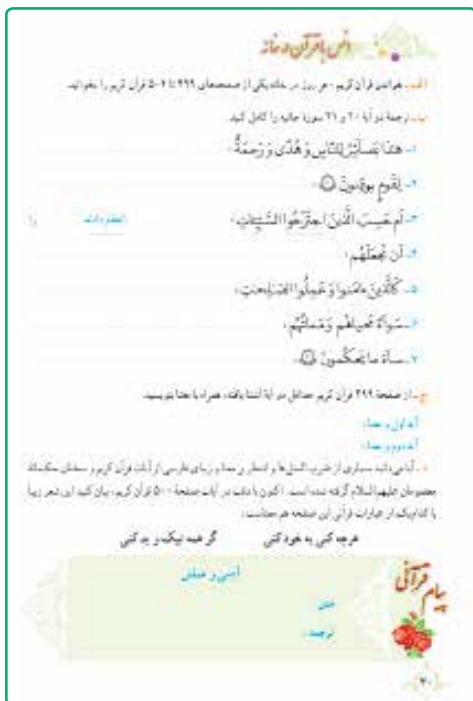 انس با قرآن در خانه
الف - خواندن قرآن کریم: هر روز در خانه یکی از صفحه‌های ۴۹۹ تا ۵۰۲ قرآن کریم را بخوانید.
ب - ترجمهٔ دو آیهٔ ۲۰ و ۲۱ سورهٔ جاثیه را کامل کنید.
۱- هٰذا بَصائِرُ لِلنّاسِ وَ هُدًی وَ رَحمَةٌ:
۲- لِقَومٍ یوقِنونَ ۲۰:
۳- اَم حَسِبَ الَّذینَ اجتَرَحُوا السَّیِّئاتِ: را
۴- اَن نَجعَلَهُم:
۵- کَالَّذینَ ءامَنوا وَ عَمِلُوا الصّالِحاتِ:
۶- سَواءً مَحیاهُم وَ مَماتُهُم:
۷- ساءَ ما یَحکُمونَ ۲۱:
ج - از صفحهٔ ۴۹۹ قرآن کریم حداقل دو آیهٔ آشنا یافته، همراه با معنا بنویسید.
آیهٔ اول و معنا:
آیهٔ دوم و معنا:
د - آیا می‌دانید بسیاری از ضرب المثل‌ها و اشعار پر معنا و زیبای فارسی از آیات قرآن کریم و سخنان حکیمانهٔ
معصومان علیهم السلام گرفته شده است. اکنون با دقت در آیات صفحهٔ ۵۰۰ قرآن کریم، بیان کنید این شعر زیبا
با کدام یک از عبارات قرآنی این صفحه هم معناست:
هرچه کنی به خود کنی گر همه نیک و بد کنی
پیام قرآنی
متن:
ترجمه:
۴۰